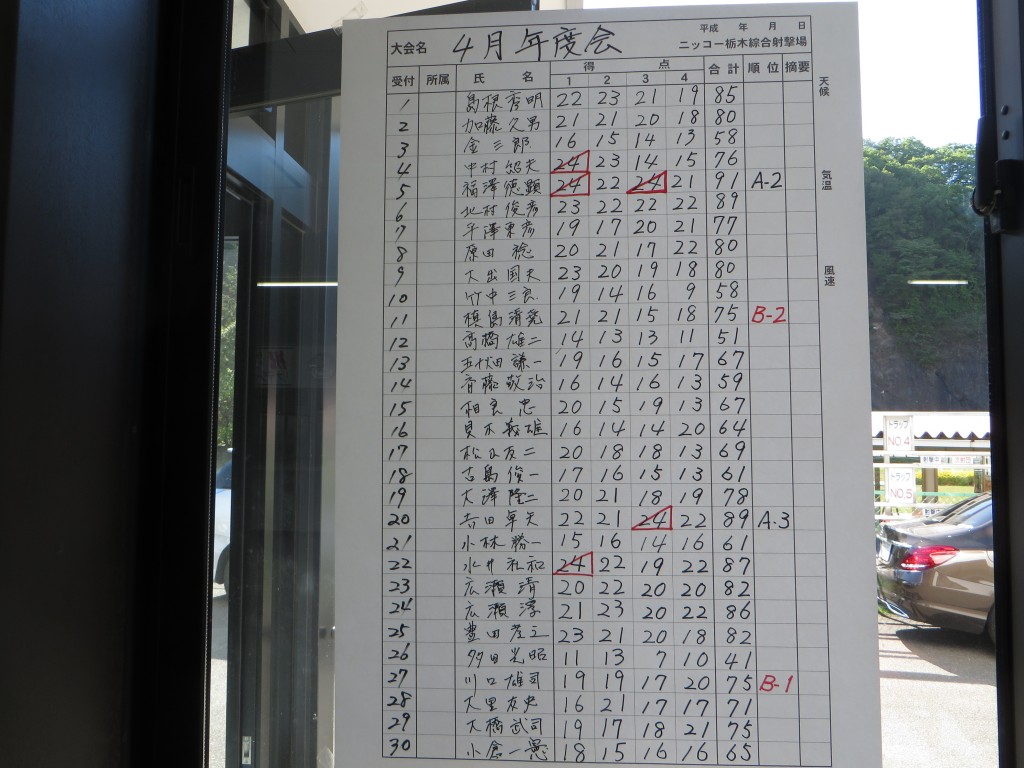 平成 年 月 日
大会名 4月年度会 ニッコー栃木綜合射撃場
受付 所属 氏 名 得 点 合計 順位 摘要
1 2 3 4
天候
気温
風速
1 島根秀明 22 23 21 19 85
2 加藤久男 21 21 20 18 80
3 金三郎 16 15 14 13 58
4 中村 夫 24 23 14 15 76
5 福澤徳顕 24 22 24 21 91 A-2
6 北村俊彦 23 22 22 22 89
7 平澤 彦 19 17 20 21 77
8 原田 稔 20 21 17 22 80
9 大出国夫 23 20 19 18 80
10 竹中三良 19 14 16 9 58
11 槙島清発 21 21 15 18 75 B-2
12 高橋雄二 14 13 13 11 51
13 五十畑謙一 19 16 15 17 67
14 斉藤敬治 16 14 16 13 59
15 相良 忠 20 15 19 13 67
16 義雄 16 14 14 20 64
17 松 友二 20 18 18 13 69
18 古島俊一 17 16 15 13 61
19 大澤隆二 20 21 18 19 78
20 吉田 矢 22 21 24 22 89 A-3
21 小林勝一 15 16 14 16 61
22 水井礼和 24 22 19 22 87
23 広瀬 清 20 22 20 20 82
24 広瀬 淳 21 23 20 22 86
25 豊田 23 21 20 18 82
26 多田光昭 11 13 7 10 41
27 川口雄司 19 19 17 20 75 B-1
28 大里友史 16 21 17 17 71
29 大橋武司 19 17 18 21 75
30 小倉一 18 15 16 16 65
トラップ
NO.4
トラップ
NO.5